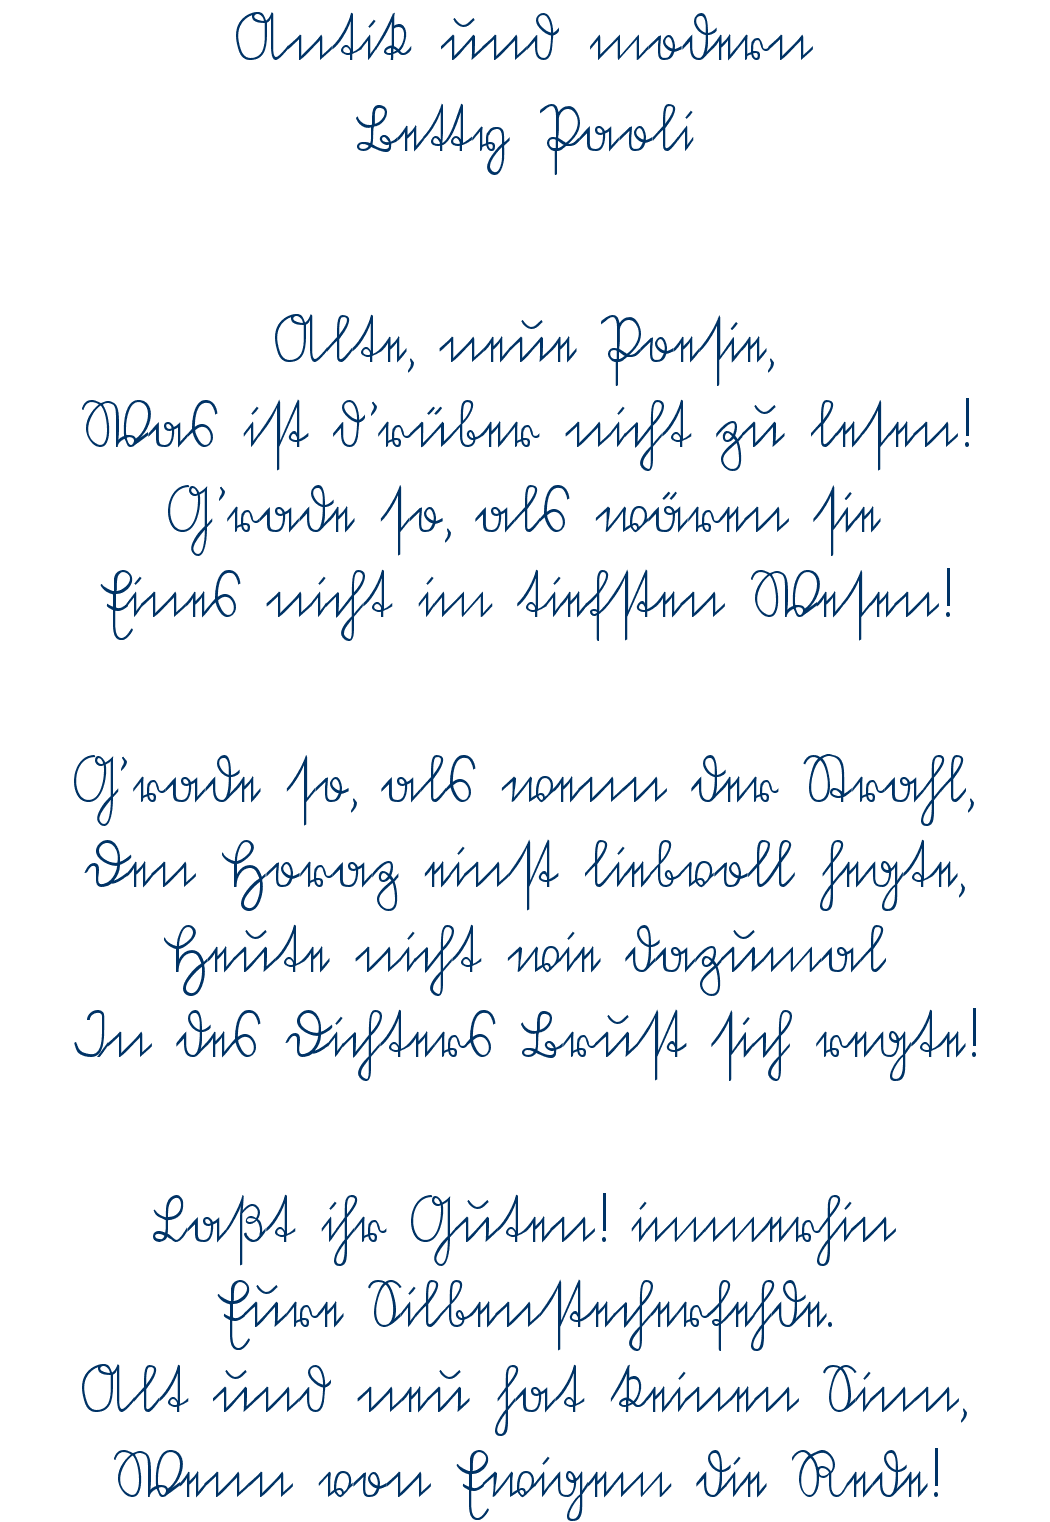 Antik und modern
Betty Paoli
Alte, neue Poesie,
Was ist d'rüber nicht zu lesen!
G'rade so, als wären sie
Eines nicht im tiefsten Wesen!
G'rade so, als wenn der Strahl,
Den Horaz einst liebvoll hegte,
Heute nicht wie dazumal
In des Dichters Brust sich regte!
Laßt ihr Guten! immerhin
Eure Silbenstecherfehde.
Alt und neu hat keinen Sinn,
Wenn von Ewigem die Rede!